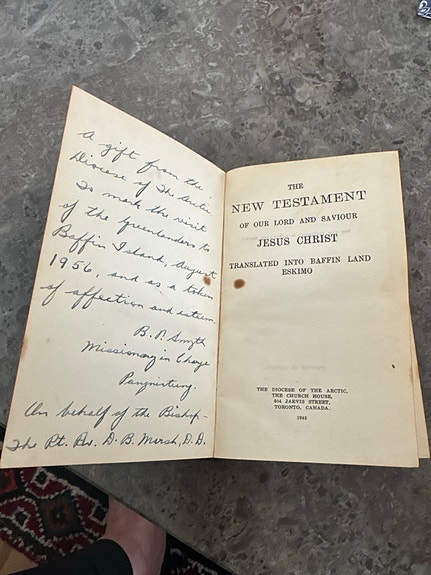 A gift from the
Diocese of The Arctic
To mark the visit
of the Greenlanders to
Baffin Island, August
1956, and as a token
of affection and esteem.
B. P. Smyth
Missionary in Charge
Pangnirtung.
On behalf of the Bishop -
The Rt. Rev. D. B. Marsh, D.D.
THE
NEW TESTAMENT
OF OUR LORD AND SAVIOUR
JESUS CHRIST
TRANSLATED INTO BAFFIN LAND
ESKIMO
THE DIOCESE OF THE ARCTIC,
THE CHURCH HOUSE,
604 JARVIS STREET,
TORONTO, CANADA.